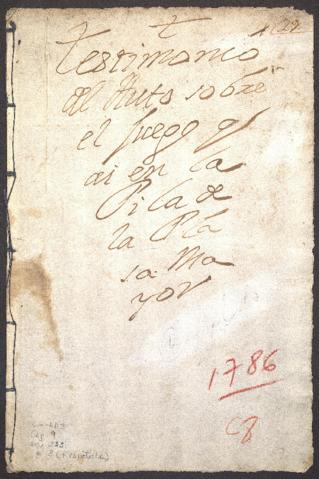 testimonio
del Auto sobre
el fuego q̃
ai en la
Pila de
la Pla
sa Ma
yor
1786
C8